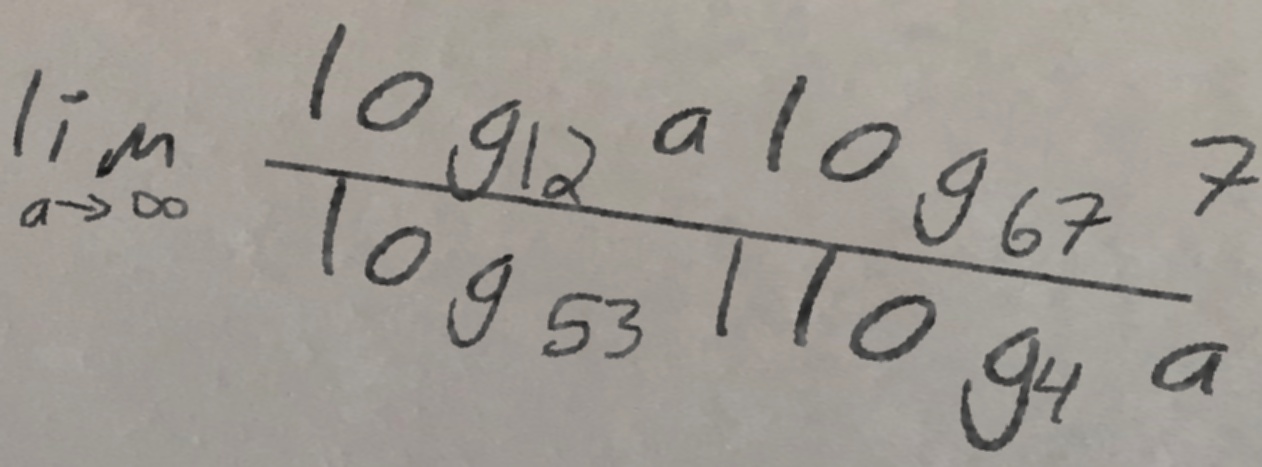 lim a→∞ (log_12 a log_67 7) / (log_53 1 log_4 a)